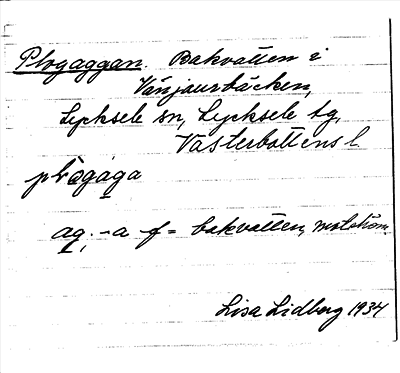 Plogaggan. Bakvatten i
Vänjaurbäcken,
Lycksele sn, Lycksele tg,
Västerbottens l.
plògaga
ag, -a f = bakvatten, motström
Lisa Lidberg 1934